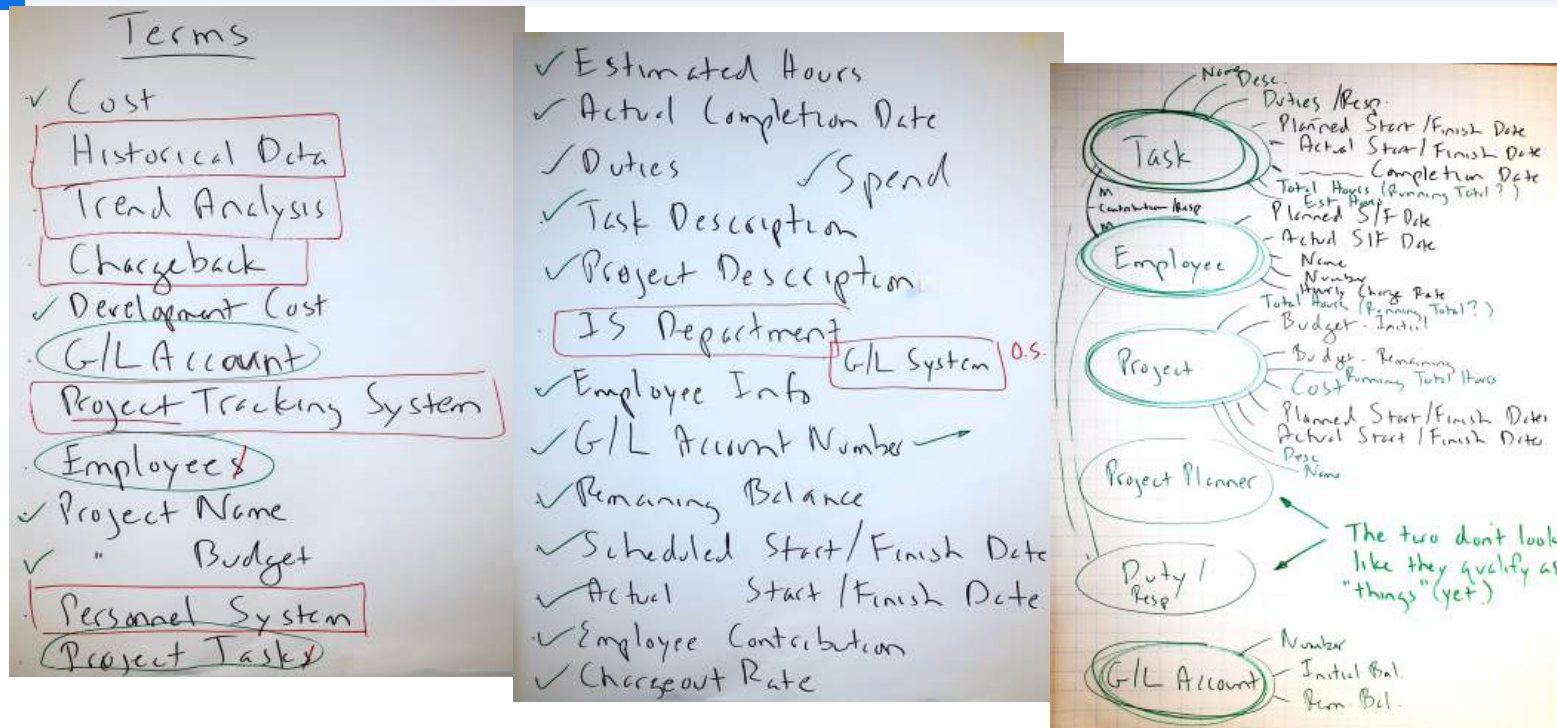 Terms
✓ Cost
Historical Data
Trend Analysis
Chargeback
✓ Development Cost
G/L Account
Project Tracking System
Employees
✓ Project Name
✓ " Budget
Personnel System
Project Tasks
✓ Estimated Hours
✓ Actual Completion Date
✓ Duties ✓ Spend
✓ Task Description
✓ Project Description
IS Department
G/L System O.S.
✓ Employee Info
✓ G/L Account Number →
✓ Remaining Balance
✓ Scheduled Start/Finish Date
✓ Actual Start/Finish Date
✓ Employee Contribution
✓ Chargeout Rate
Name
Desc.
Duties/Resp.
Planned Start/Finish Date
Actual Start/Finish Date
Completion Date
Total Hours (Running Total?)
Est Hours
Task
M
Contribution/Resp
M
Planned S/F Date
Actual S/F Date
Name
Number
Hourly Charge Rate
Employee
Total Hours (Running Total?)
Budget - Initial
Budget - Remaining
Running Total Hours
Cost
Planned Start/Finish Dates
Actual Start/Finish Dates
Desc
Name
Project
Project Planner
The two don't look
like they qualify as
"things" (yet.)
Duty/
Resp
G/L Account
Number
Initial Bal.
Rem. Bal.